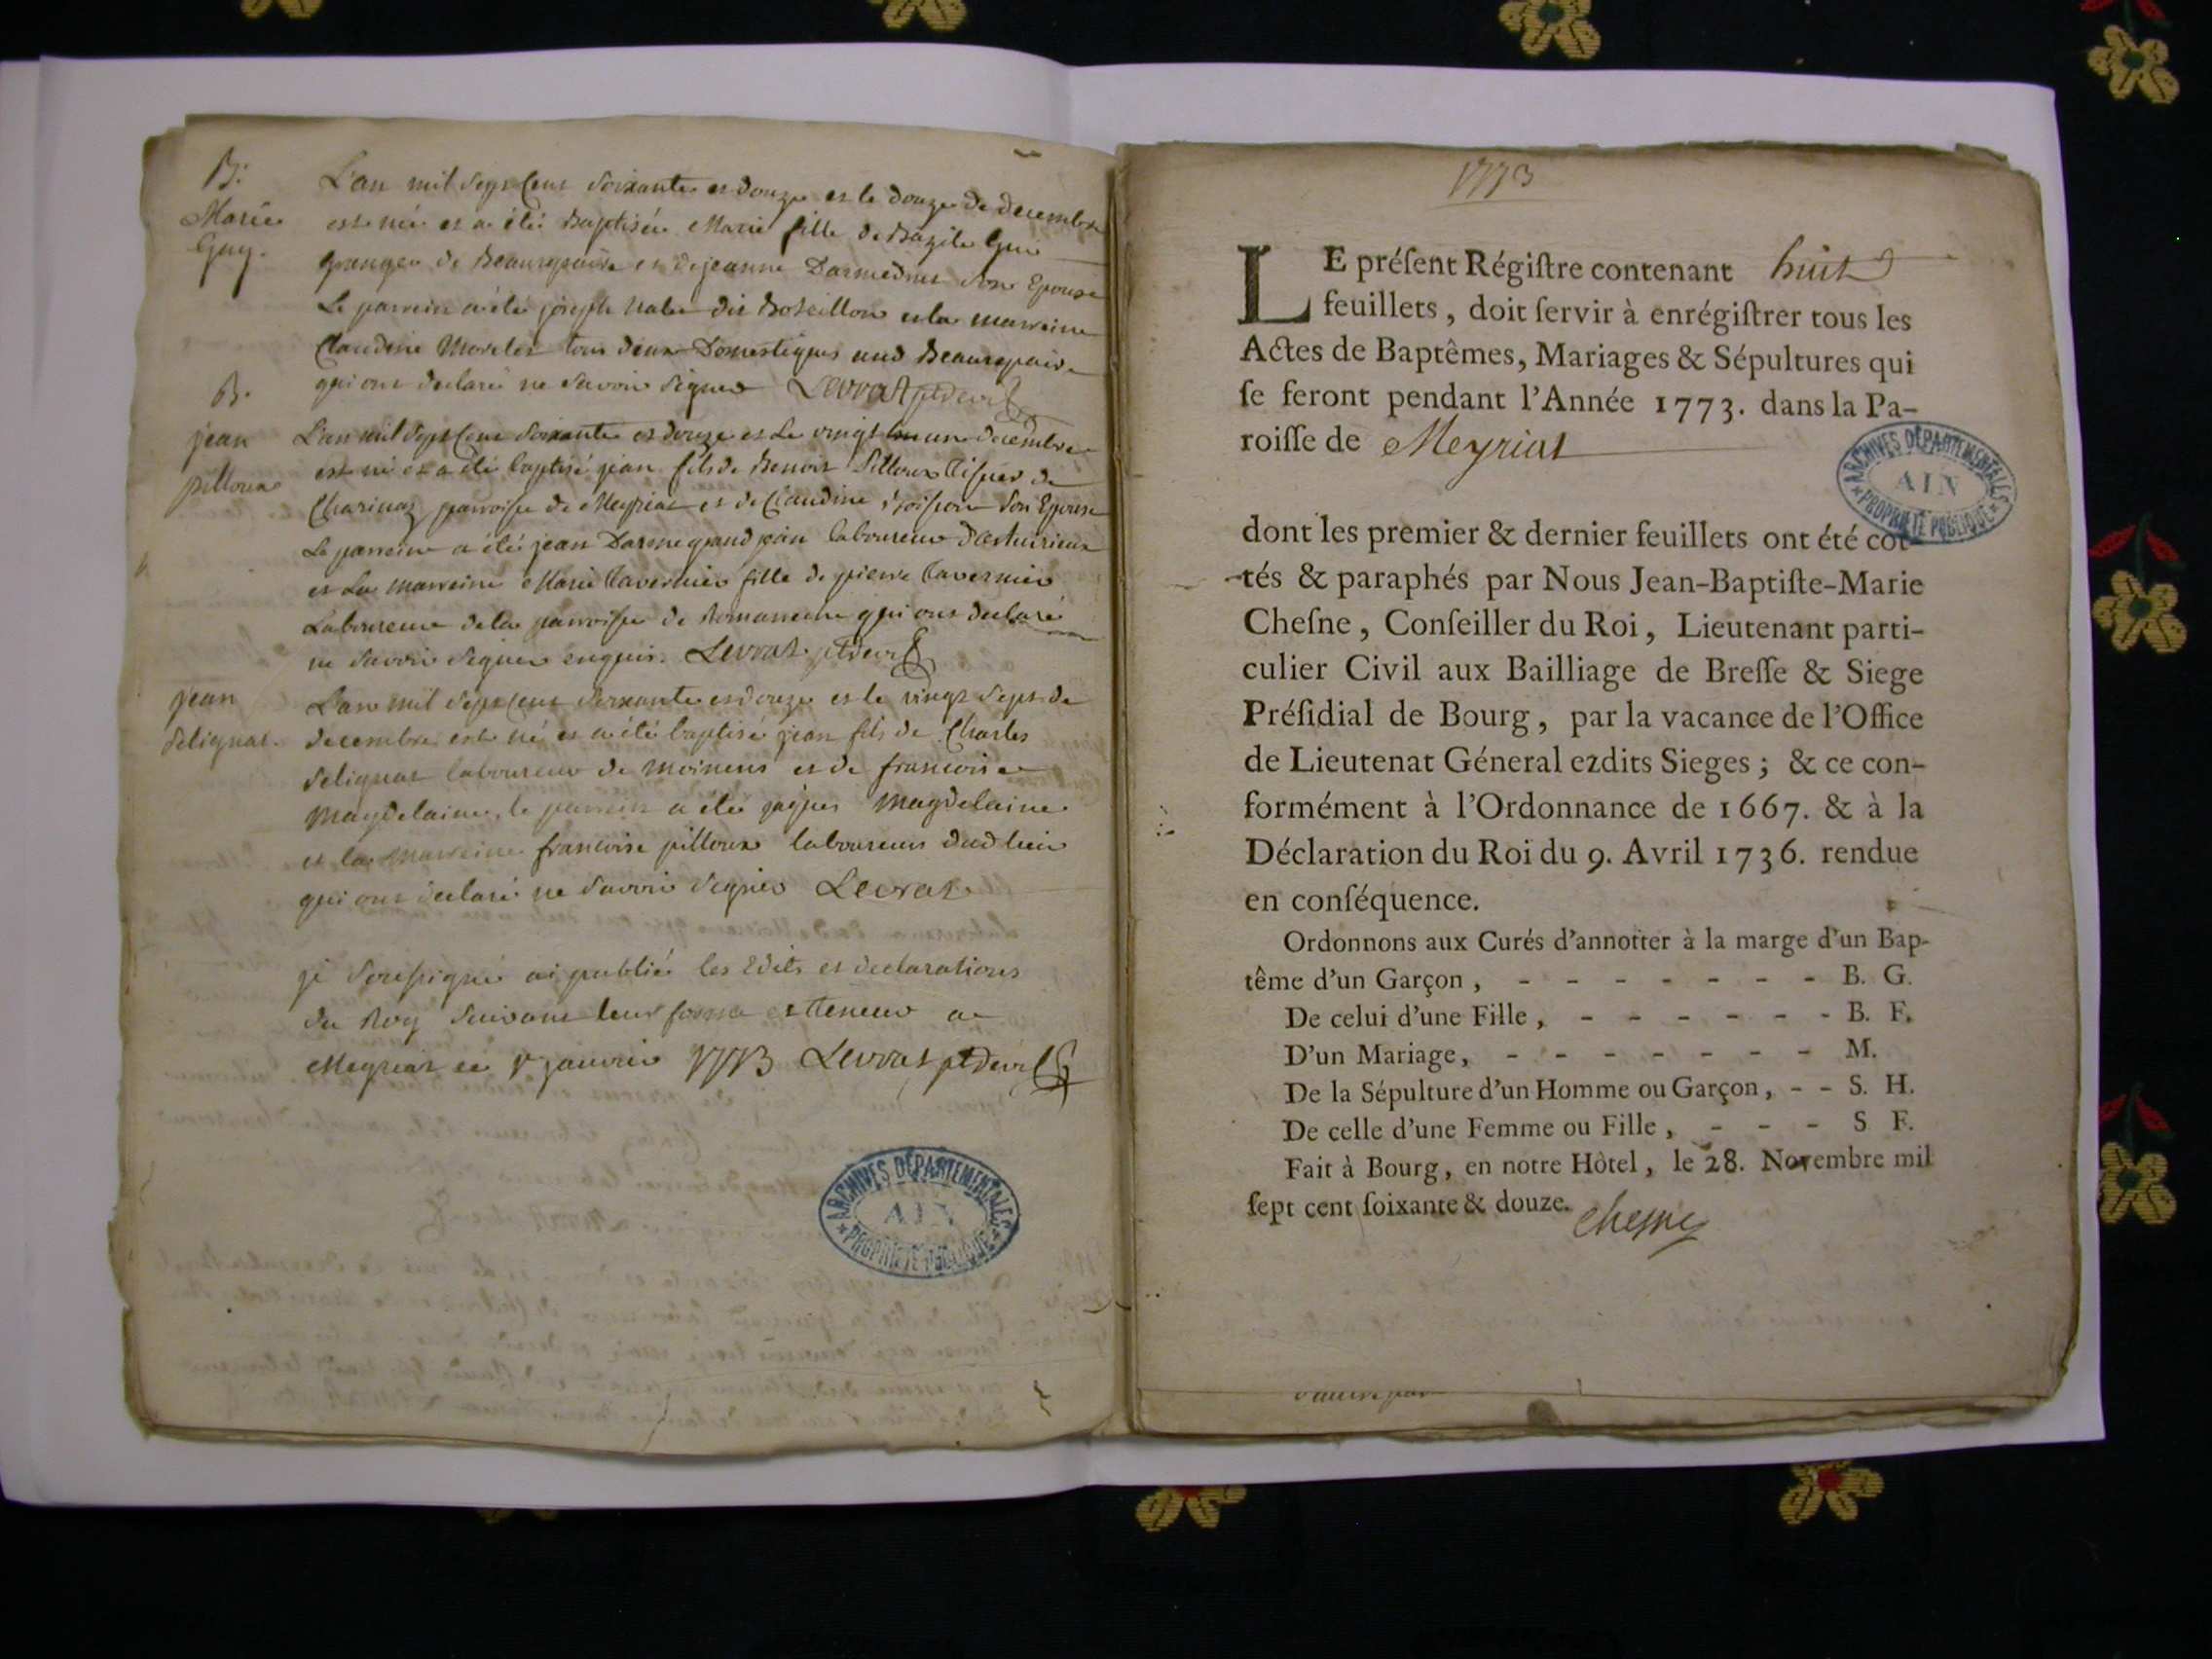 B.
Marie
Guy.
L'an mil sept cent soixante et douze et le douze de decembre
est née et a été Baptisée Marie fille de Bazile Gui
granger de Beaurepaire et de jeanne son Epouse
Le parrein a été joseph dit et la marreine
Claudine Morelet tous deux Domestiques aud Beaurepaire
qui ont declaré ne savoir signer Levrat
B.
jean
pilloux
L'an mil sept cent soixante et douze et le vingt un decembre
est né et a été baptisé jean fils de Benoit Pilloux de
Charinaz parroisse de Meyriat et de Claudine son Epouse
Le parrein a été jean laboureur
et La marreine Marie Tavernier fille de pierre Tavernier
Laboureur de la parroisse de qui ont declaré
ne savoir signer enquis. Levrat
jean
Selignat.
L'an mil sept cent soixante et douze et le vingt sept de
decembre est né et a été baptisé jean fils de Charles
Selignat laboureur de moinens et de francoise
Magdelaine, le parrein a été Magdelaine
et la marreine francoise pilloux laboureurs dud lieu
qui ont declaré ne savoir signer Levrat
je soussigné ai publié les Edits et declarations
du Roy suivant leur forme et teneur a
Meyriat ce janvier 1773 Levrat
ARCHIVES DÉPARTEMENTALES
AIN
PROPRIÉTÉ PUBLIQUE
1773
LE préſent Régiſtre contenant huit
feuillets, doit ſervir à enrégiſtrer tous les
Actes de Baptêmes, Mariages & Sépultures qui
ſe feront pendant l'Année 1773. dans la Pa-
roiſſe de Meyriat
ARCHIVES DÉPARTEMENTALES
AIN
PROPRIÉTÉ PUBLIQUE
dont les premier & dernier feuillets ont été cot-
tés & paraphés par Nous Jean-Baptiſte-Marie
Cheſne, Conſeiller du Roi, Lieutenant parti-
culier Civil aux Bailliage de Breſſe & Siege
Préſidial de Bourg, par la vacance de l'Office
de Lieutenat Géneral ezdits Sieges; & ce con-
formément à l'Ordonnance de 1667. & à la
Déclaration du Roi du 9. Avril 1736. rendue
en conſéquence.
Ordonnons aux Curés d'annotter à la marge d'un Bap-
tême d'un Garçon, - - - - - - - B. G.
De celui d'une Fille, - - - - - - B. F.
D'un Mariage, - - - - - - - M.
De la Sépulture d'un Homme ou Garçon, - - S. H.
De celle d'une Femme ou Fille, - - - S F.
Fait à Bourg, en notre Hôtel, le 28. Novembre mil
ſept cent ſoixante & douze. Chesne